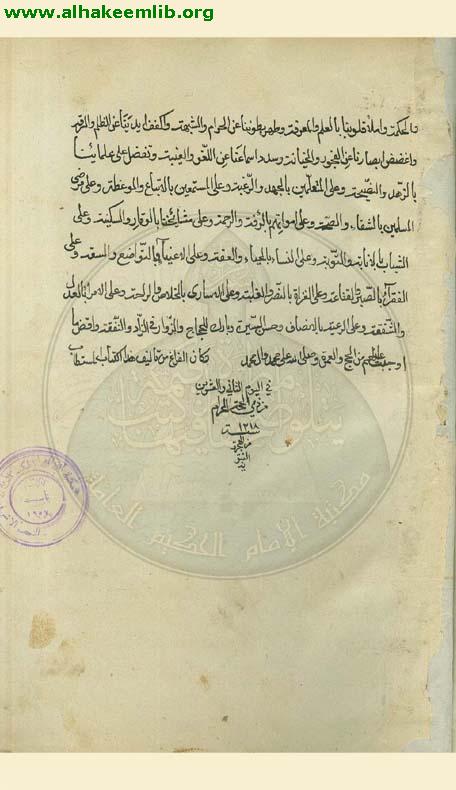 www.alhakeemlib.org
والحكمة واملأ قلوبنا بالعلم والمعرفة وطهر بطوننا عن الحرام والشبهة واكفف ايدينا عن الظلم والسرقة
واغضض ابصارنا عن الفجور والخيانة وسدد اسماعنا عن اللغو والغيبة وتفضل على علمائنا
بالزهد والنصيحة وعلى المتعلمين بالجهد والرغبة وعلى المستمعين بالاتباع والموعظة وعلى مرضى
المسلمين بالشفاء والصحة وعلى امواتهم بالرأفة والرحمة وعلى مشائخنا بالوقار والسكينة وعلى
الشباب بالانابة والتوبة وعلى النساء بالحياء والعفة وعلى الاغنياء بالتواضع والسعة وعلى
الفقراء بالصبر والقناعة وعلى الغزاة بالنصر والغلبة وعلى الاسارى بالخلاص والراحة وعلى الامراء بالعدل
والشفقة وعلى الرعية بالانصاف وحسن السيرة وبارك للحجاج والزوار في الزاد والنفقة واقض ما
اوجبت عليهم من الحج والعمرة وكان الفراغ من تأليف هذا الكتاب
في اليوم الثاني والعشرين
من ذي الحجة الحرام
سنة ١٢١٨
من الهجرة
النبو
ية
مكتبة الامام الحكيم العامة